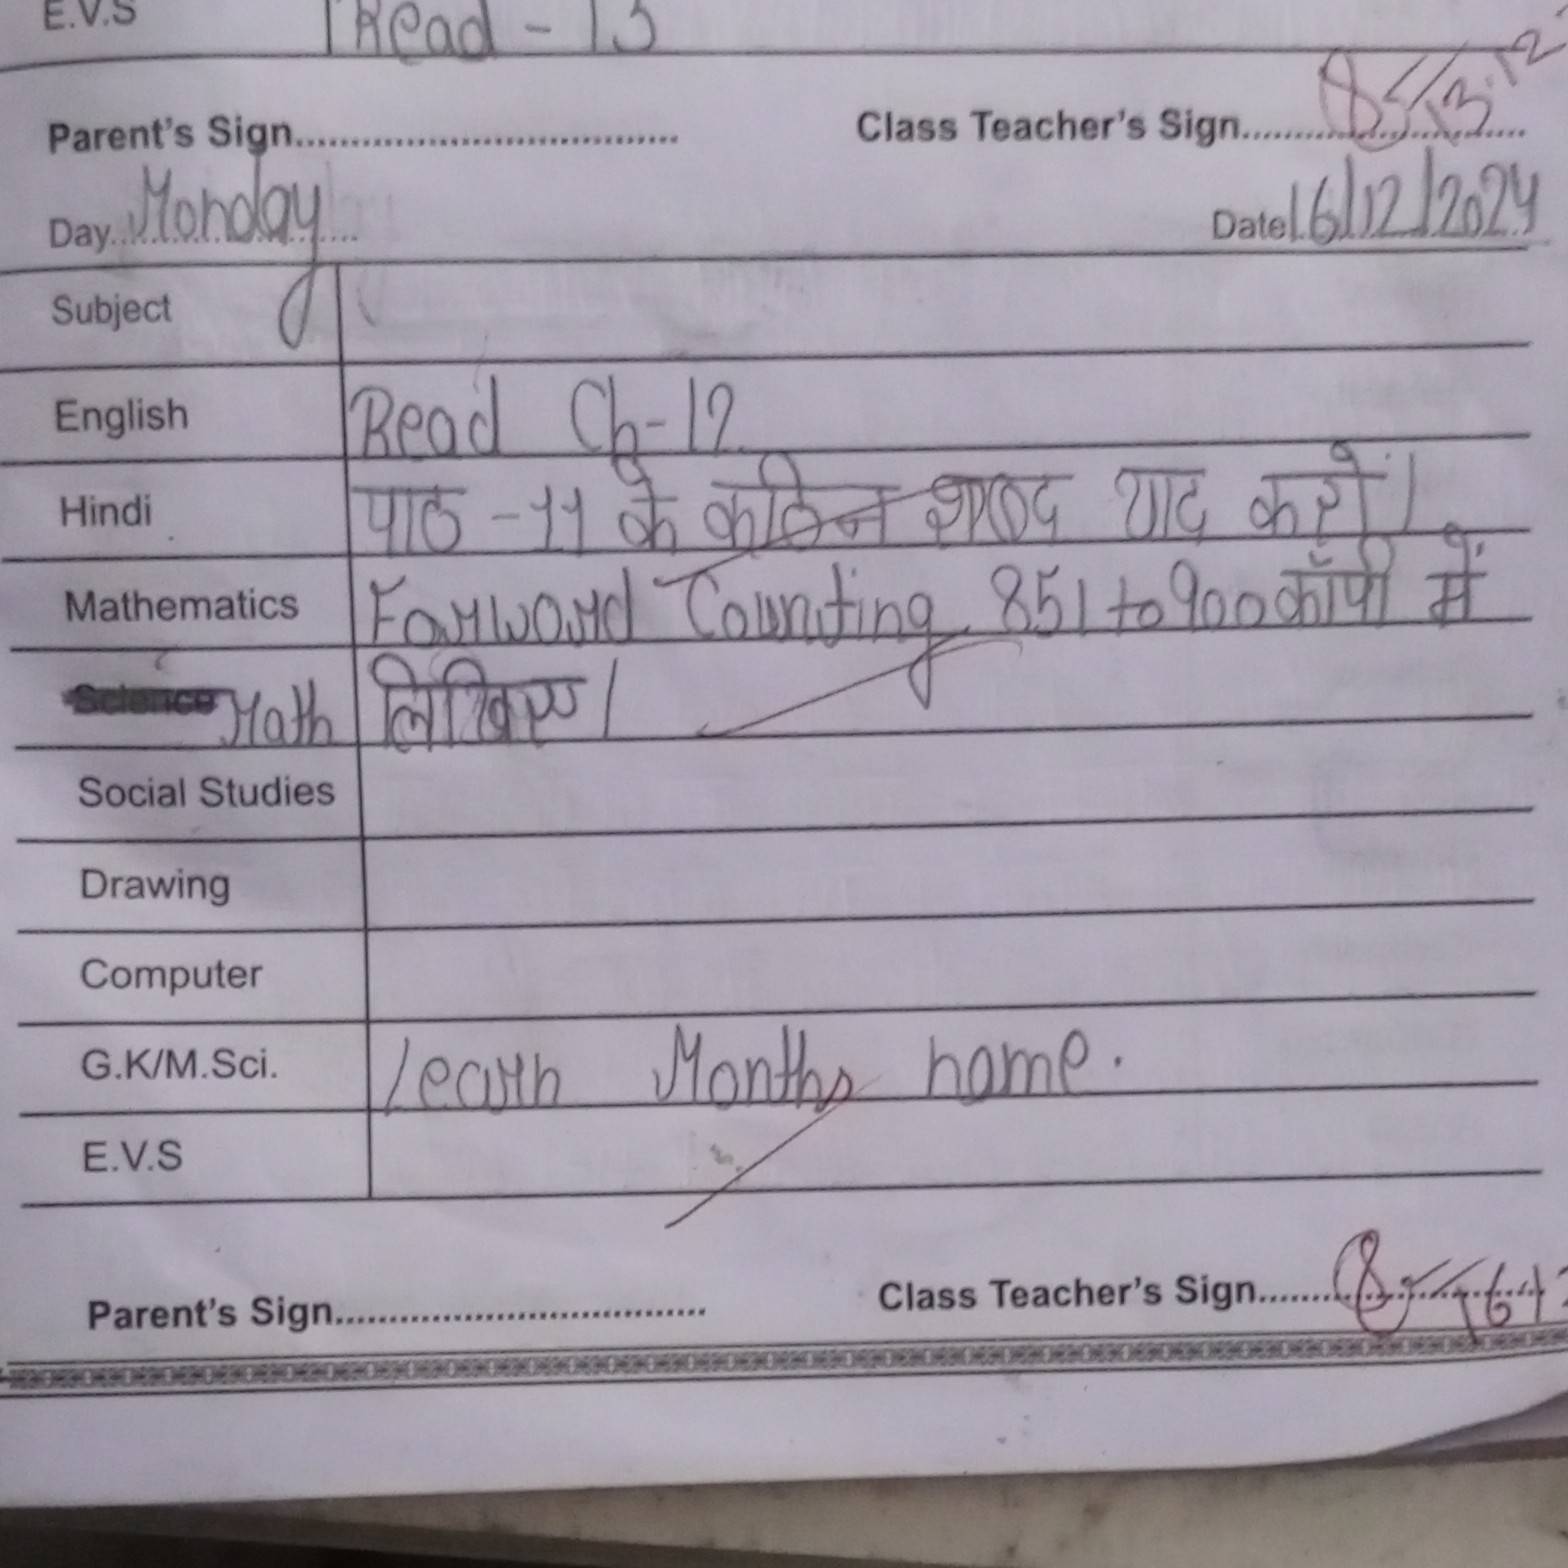 E.V.S Read - 13
Parent's Sign.............................. Class Teacher's Sign..........................
Day Monday Date 16/12/2024
Subject
English Read Ch-12
Hindi पाठ -11 के कठिन शब्द याद करो।
Mathematics Forword Counting 851 to 900 कॉपी में
Math लिखिए।
Social Studies
Drawing
Computer
G.K/M.Sci. learn Months name.
E.V.S
Parent's Sign.............................. Class Teacher's Sign..........................